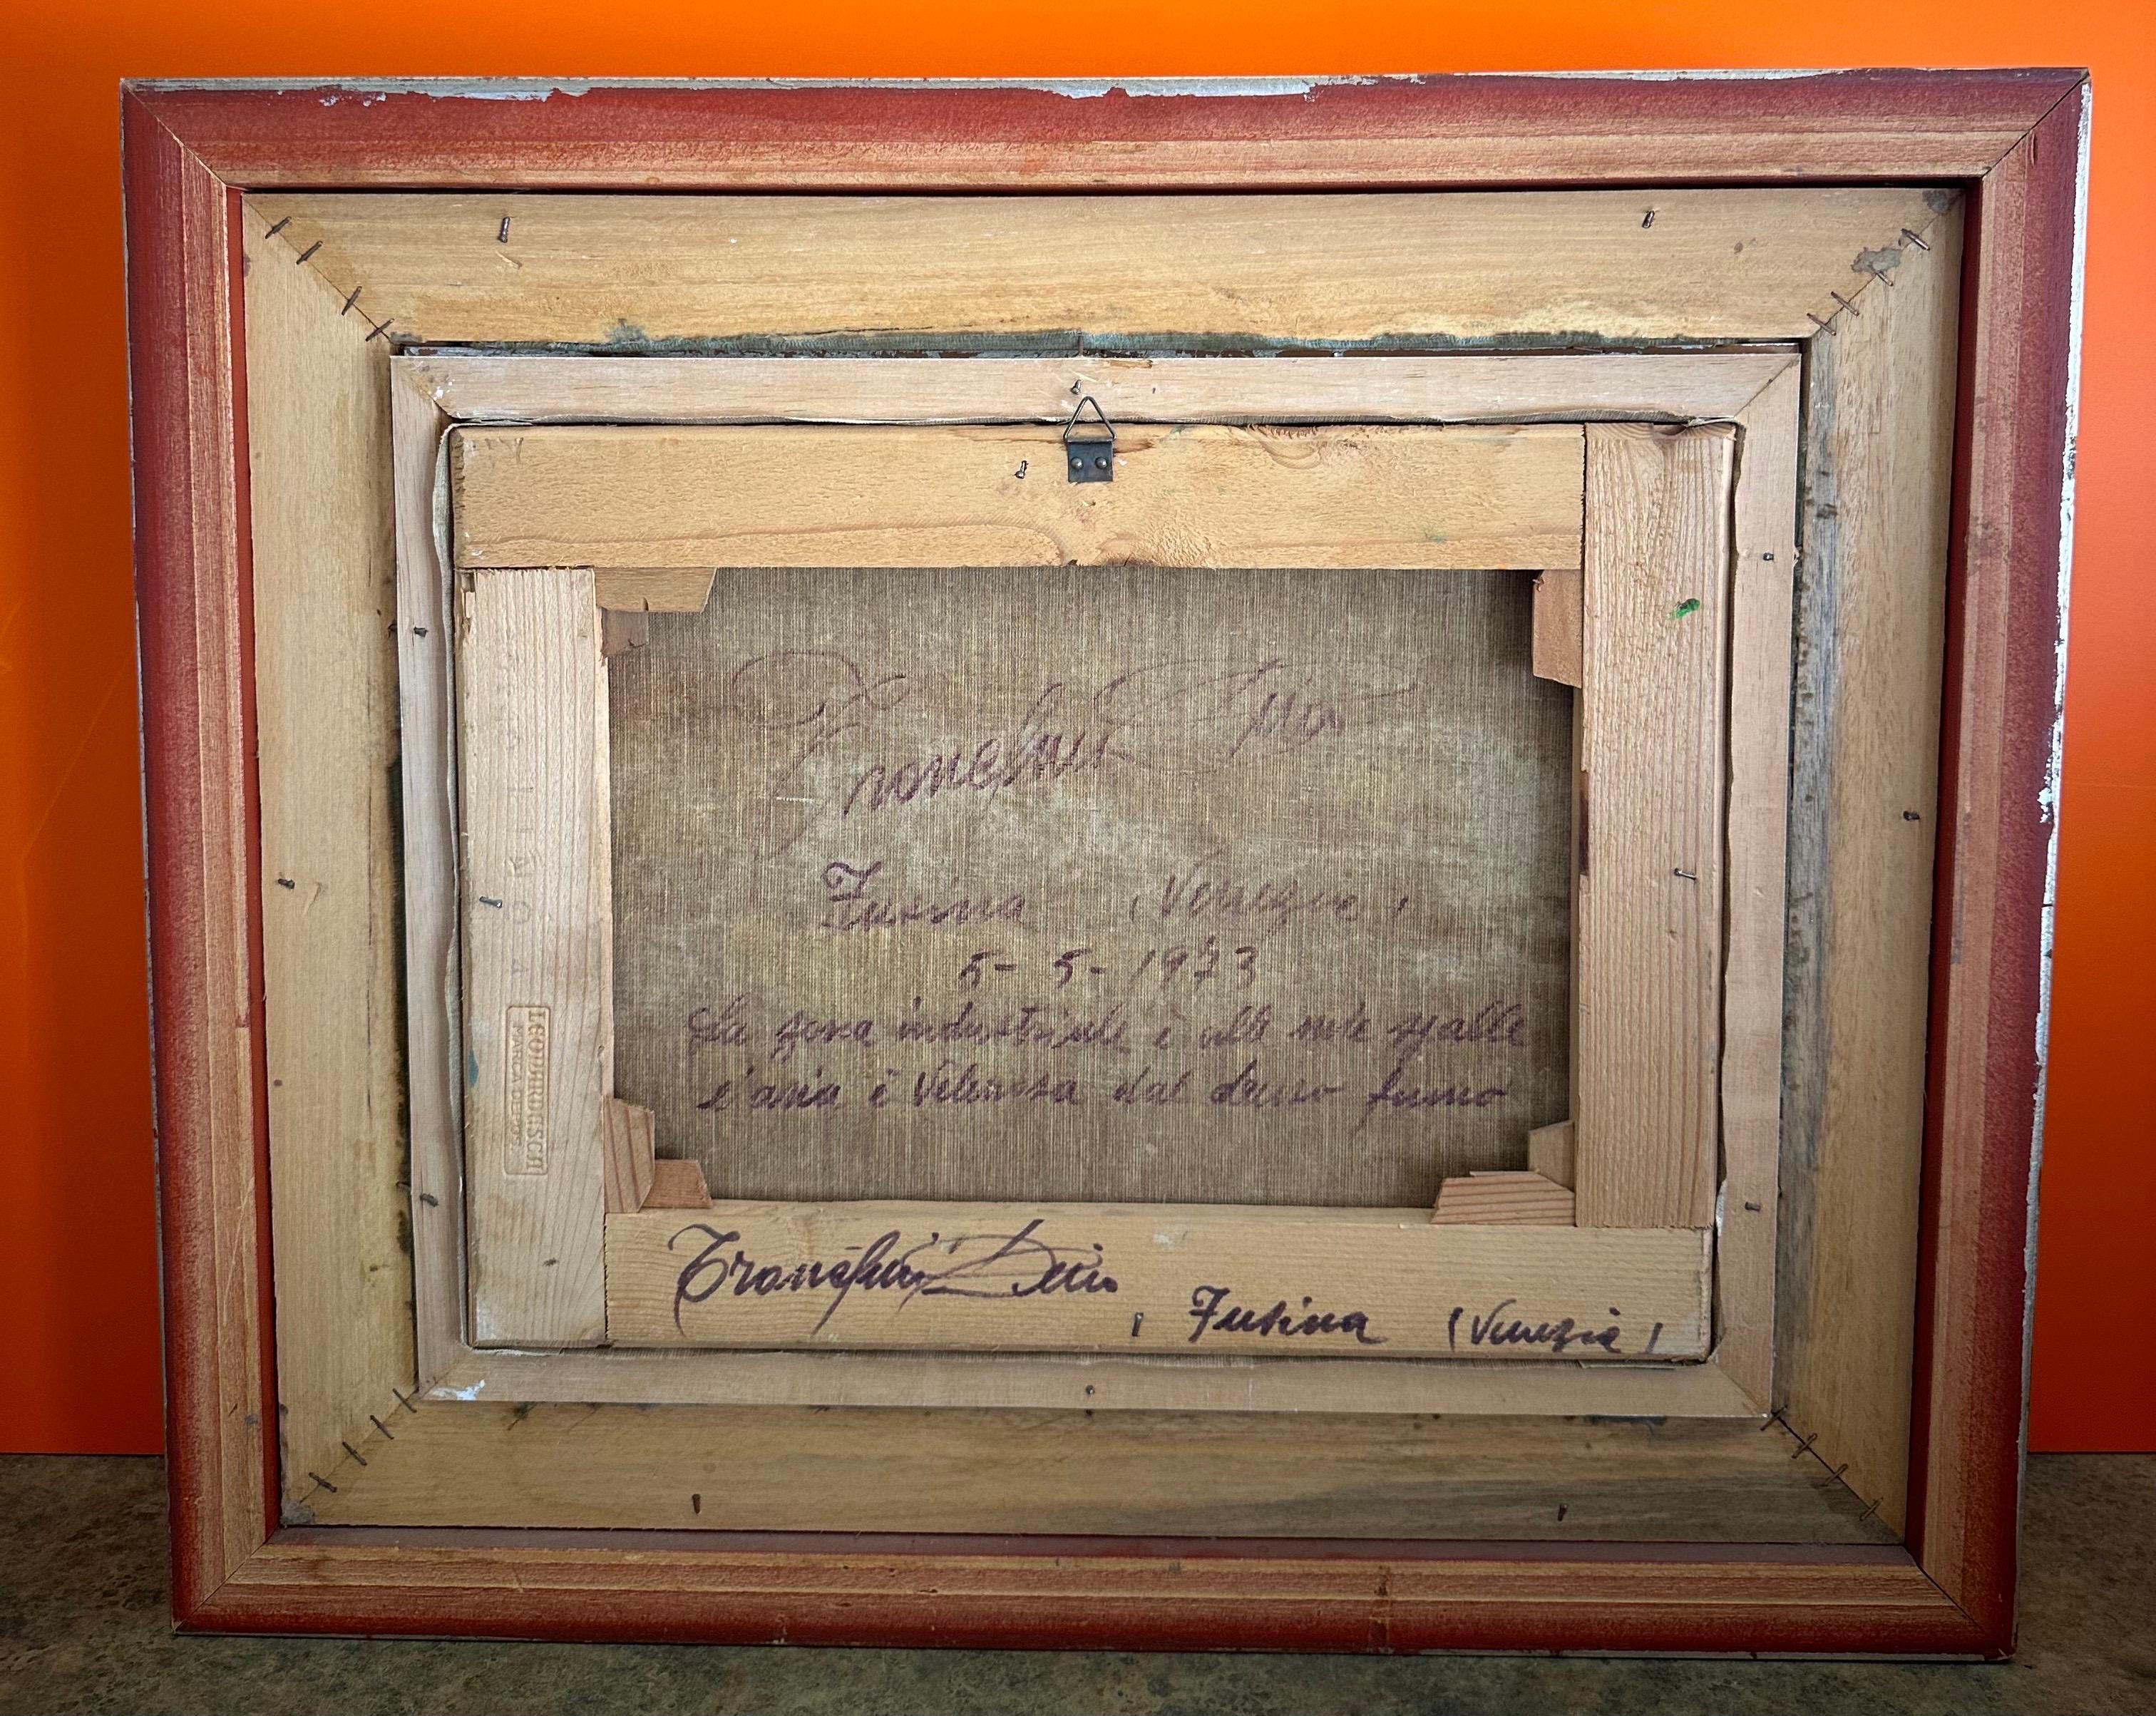 Tronchin Dino
Fusina (Venezia)
5-5-1973
La zona industriale è alle mie spalle
l'aria è velenosa dal denso fumo
LEONARDESCA
MARCA DEPOS.
Tronchin Dino, Fusina (Venezia)